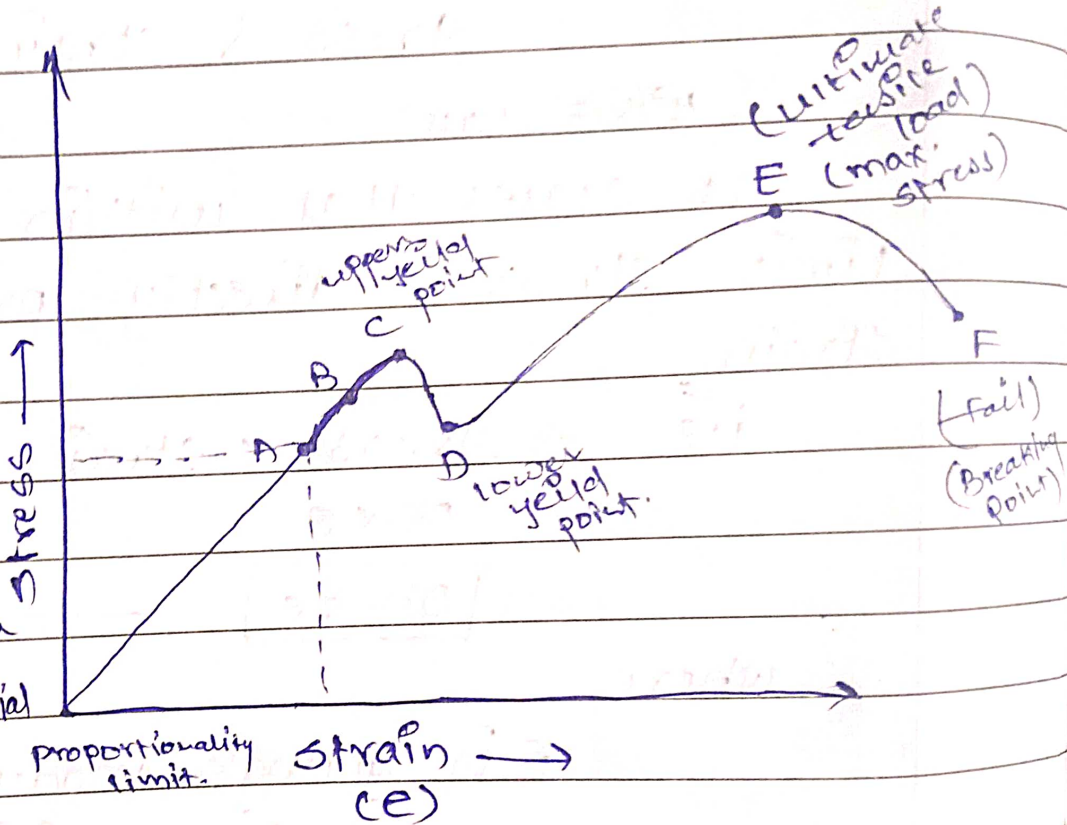 (ultimate
tensile
load)
(max.
stress)
E
uppers
yeild
point.
C
B
A
D
lower
yeild
point.
F
(fail)
(Breaking
point)
Stress →
ial
proportionality
limit.
Strain →
(e)